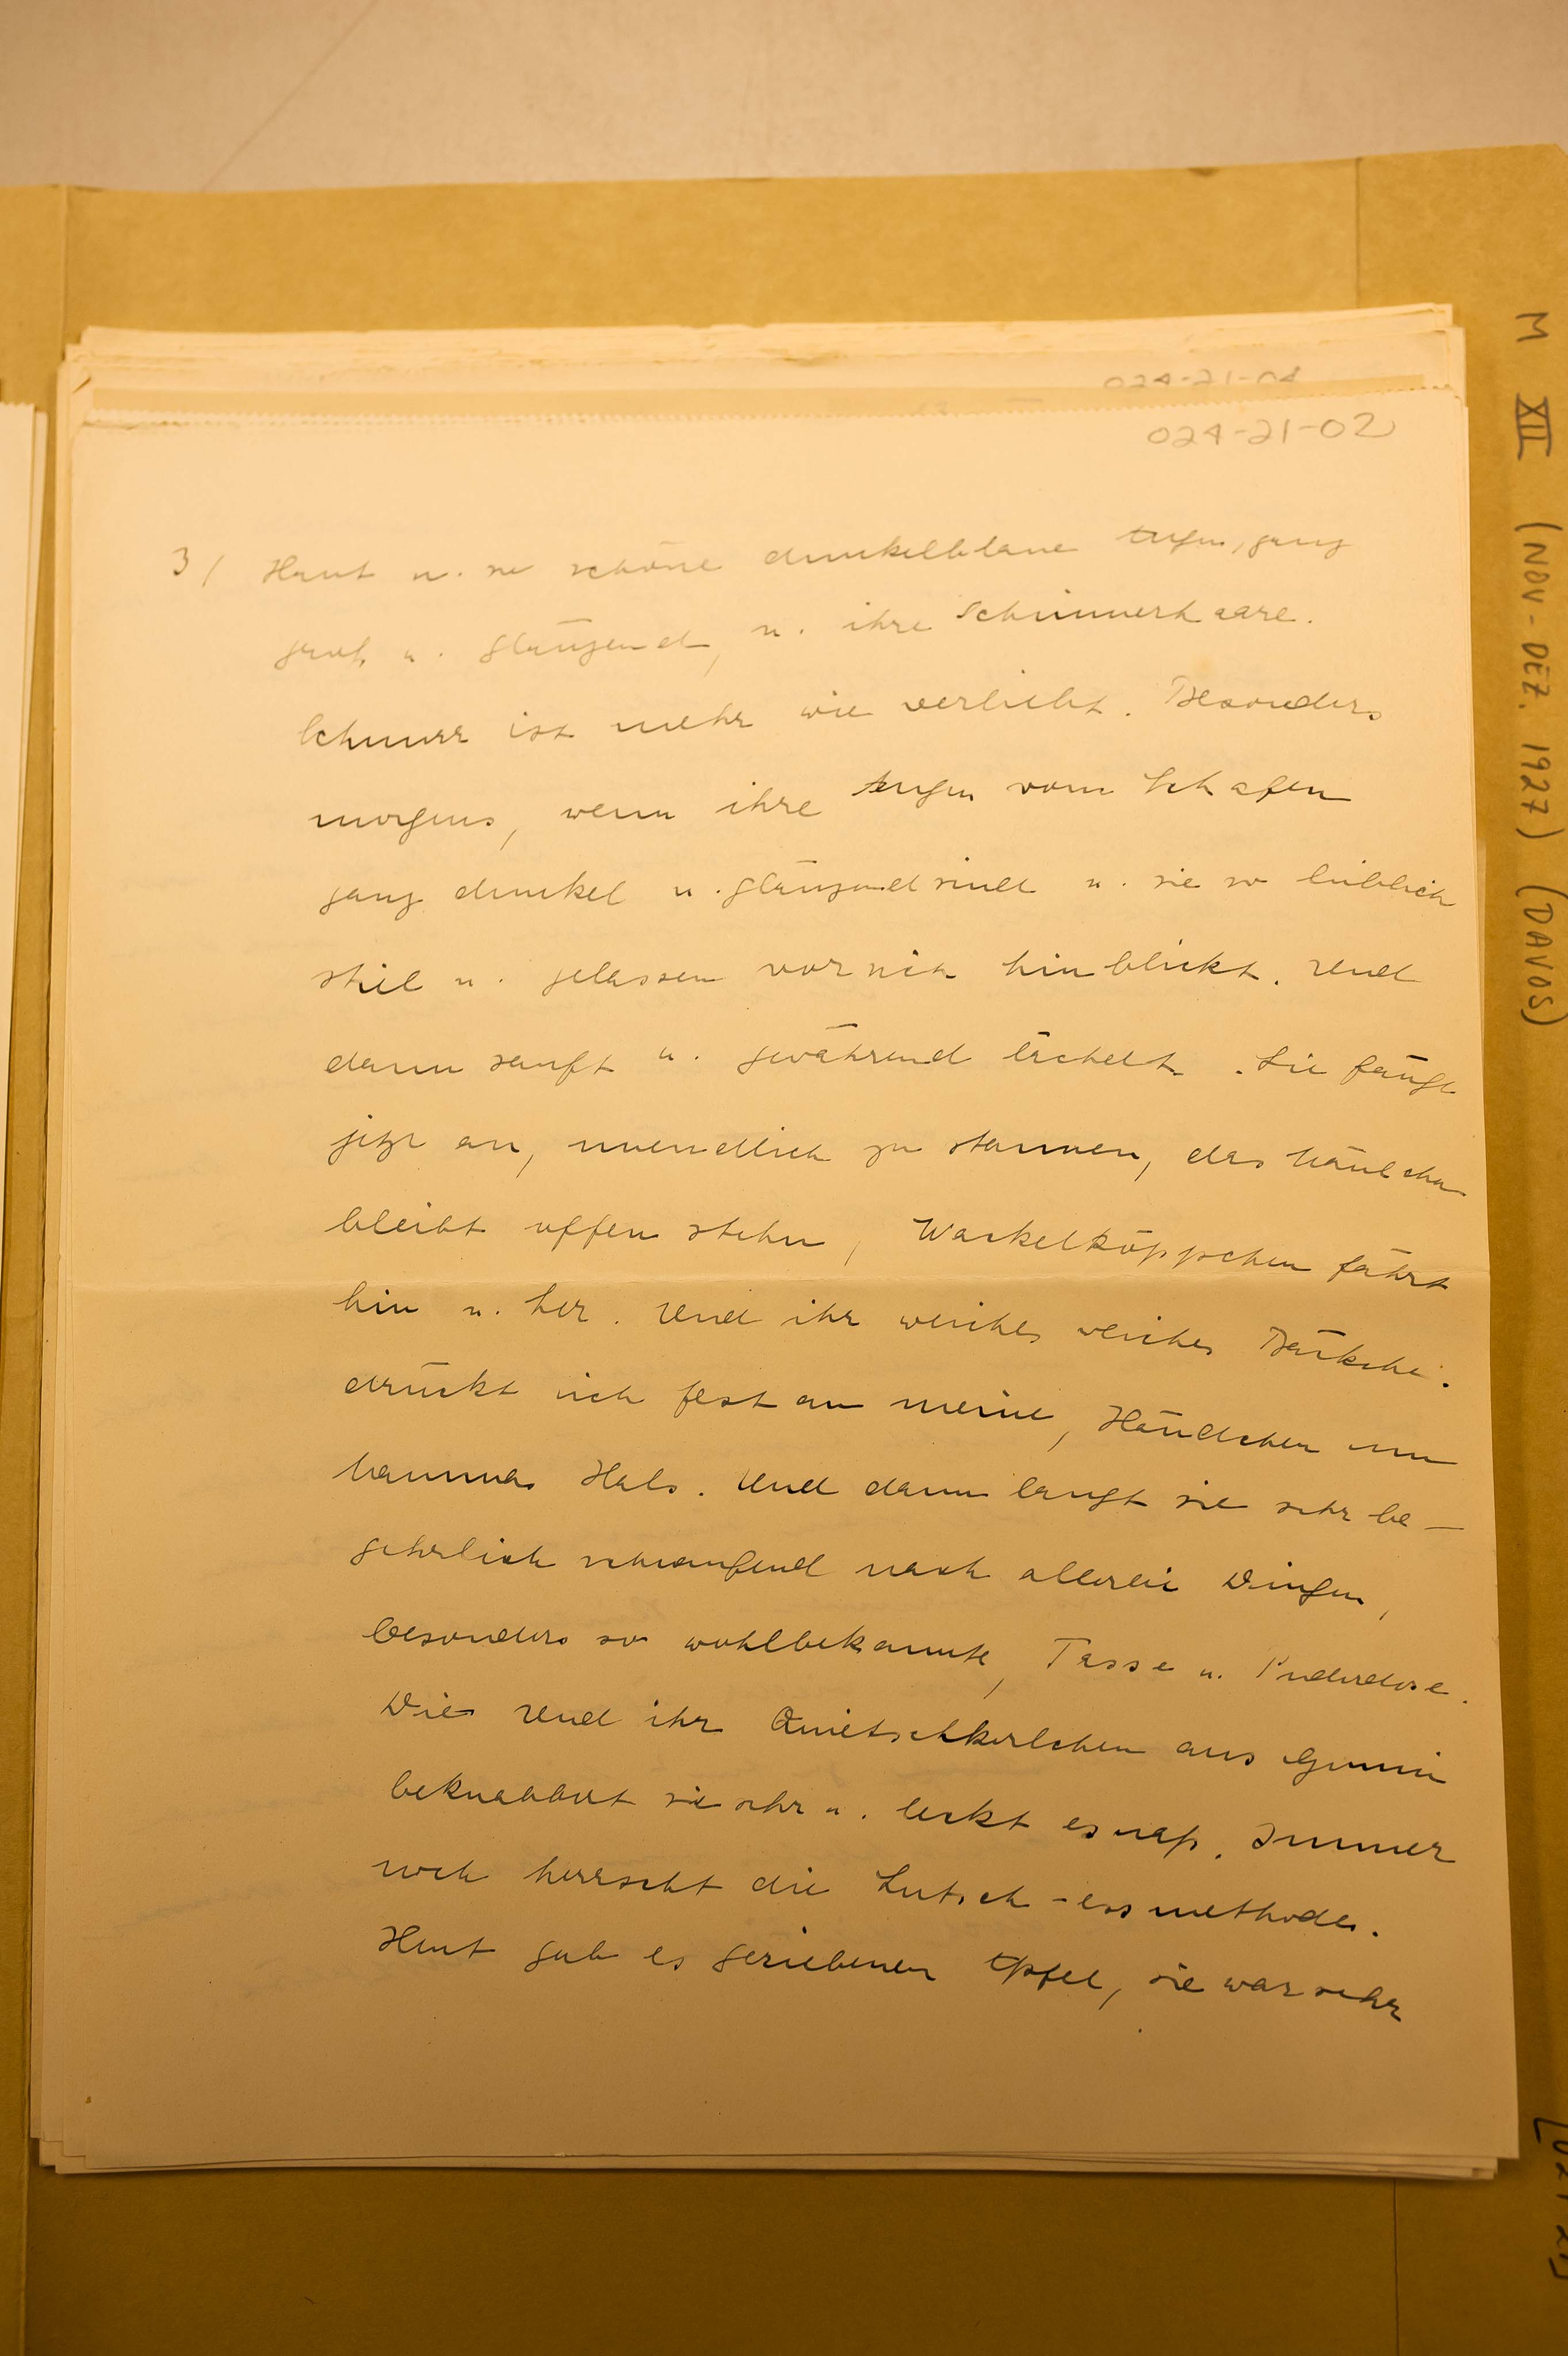 024-21-04
024-21-02
3/ Haut u. so schöne dunkelblaue Augen, ganz
groß u. glänzend, u. ihre Schimmerhaare.
Schnurr ist mehr wie verliebt. Besonders
morgens, wenn ihre Augen vom Schlafen
ganz dunkel u. glänzend sind u. sie so lieblich
still u. gelassen vor sich hinblickt. Und
dann sanft u. gewährend lächelt. Sie fängt
jetzt an, unendlich zu staunen, das Mäulchen
bleibt offen stehn, Wackelköppchen fährt
hin u. her. Und ihr weiches weiches Bäckchen
drückt sich fest an meine, Händchen um
Mammas Hals. Und dann langt sie sehr be-
gehrlich schnaufend nach allerlei Dingen,
besonders so wohlbekannte, Tasse u. Puderdose.
Die und ihr Quietschkerlchen aus Gummi
beknabbert sie sehr u. leckt es naß. Immer
noch herrscht die Lutsch-essmethode.
Heut gab es geriebenen Apfel, sie war sehr
M XII (NOV-DEZ. 1927) (DAVOS)